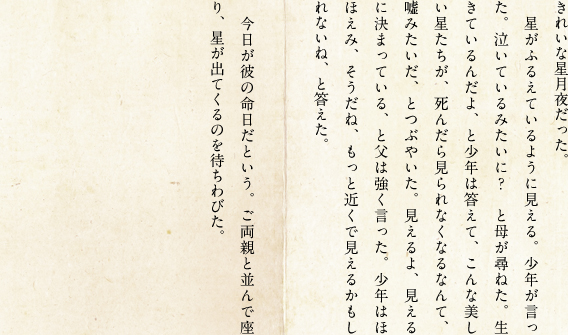 きれいな星月夜だった。
星がふるえているように見える。少年が言っ
た。泣いているみたいに？　と母が尋ねた。生
きているんだよ、と少年は答えて、こんな美し
い星たちが、死んだら見られなくなるなんて、
嘘みたいだ、とつぶやいた。見えるよ、見える
に決まっている、と父は強く言った。少年はほ
ほえみ、そうだね、もっと近くで見えるかもし
れないね、と答えた。
今日が彼の命日だという。ご両親と並んで座
り、星が出てくるのを待ちわびた。